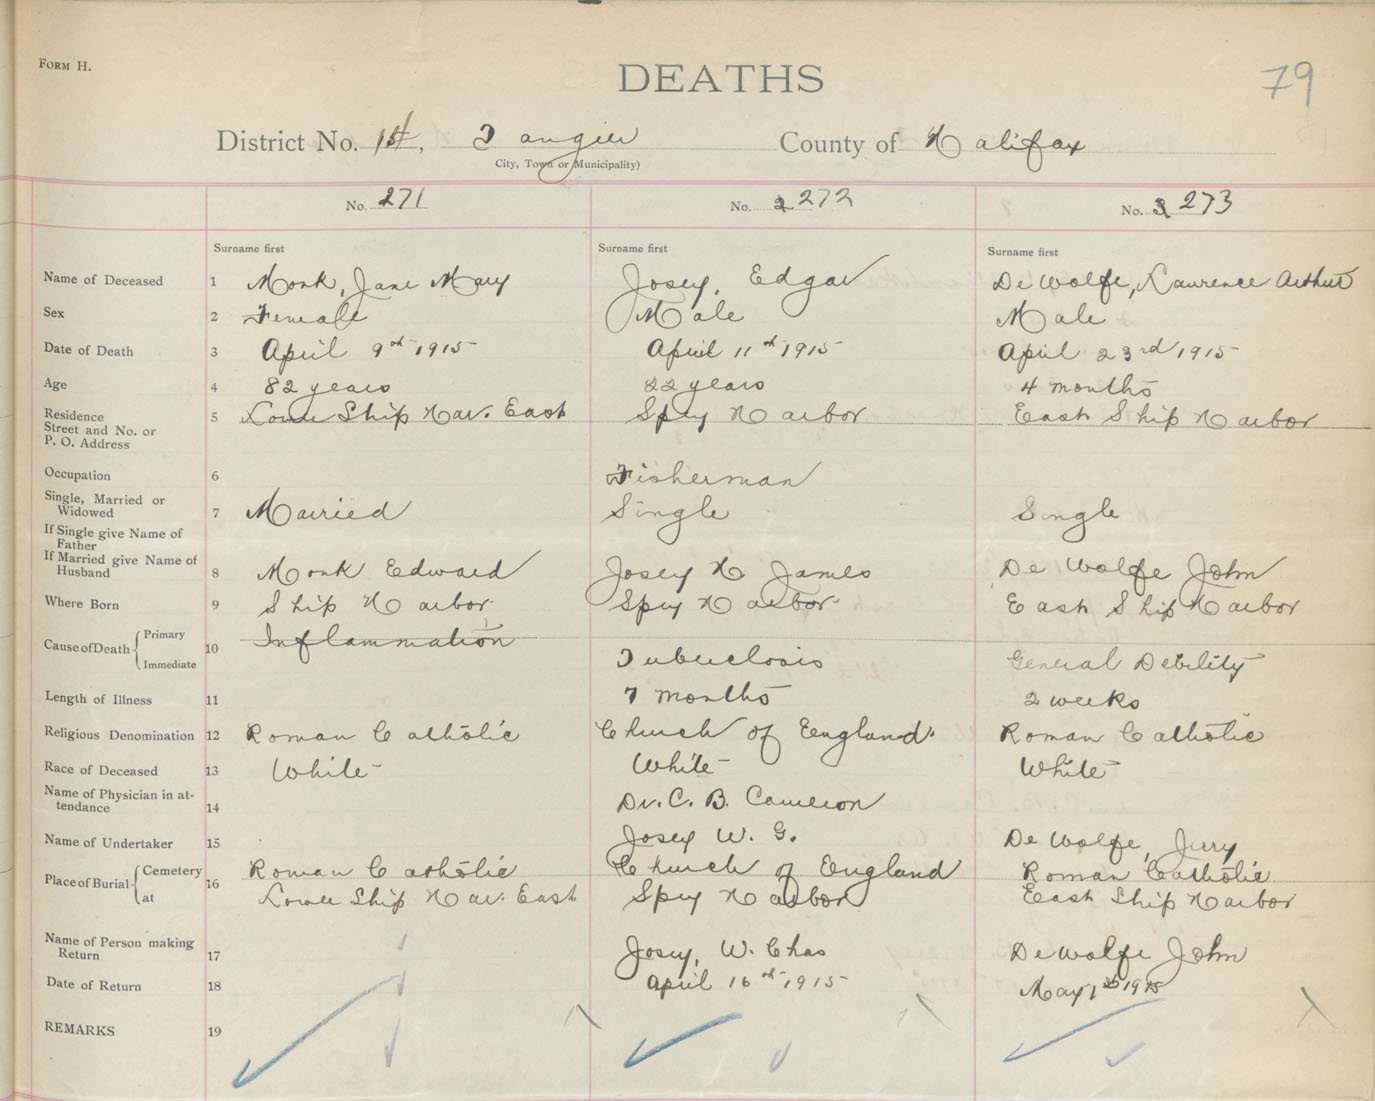 FORM H.
DEATHS
79
District No. 14, Tangier County of Halifax
City, Town or Municipality)
No. 271 No. 2 272 No. 3 273
Surname first Surname first Surname first
Name of Deceased 1 Monk, Jane Mary Josey, Edgar De Wolfe, Laurence Arthur
Sex 2 Female Male Male
Date of Death 3 April 9th 1915 April 11th 1915 April 23rd 1915
Age 4 82 years 22 years 4 months
Residence
Street and No. or
P. O. Address
5 Lower Ship Har. East Spry Harbor East Ship Harbor
Occupation 6 Fisherman
Single, Married or
Widowed
7 Married Single Single
If Single give Name of
Father
If Married give Name of
Husband
8 Monk Edward Josey H. James De Wolfe John
Where Born 9 Ship Harbor Spry Harbor East Ship Harbor
Cause of Death { Primary
Immediate
10 Inflammation Tuberclosis General Debility
Length of Illness 11 7 months 2 weeks
Religious Denomination 12 Roman Catholic Church of England Roman Catholic
Race of Deceased 13 White White White
Name of Physician in at-
tendance
14 Dr. C. B. Cameron
Name of Undertaker 15 Josey W. G. De Wolfe, Jerry
Place of Burial { Cemetery
at
16 Roman Catholic Church of England Roman Catholic
Lower Ship Har. East Spry Harbor East Ship Harbor
Name of Person making
Return
17 Josey, W. Chas De Wolfe John
Date of Return 18 April 16th 1915 May 1st 1915
REMARKS 19